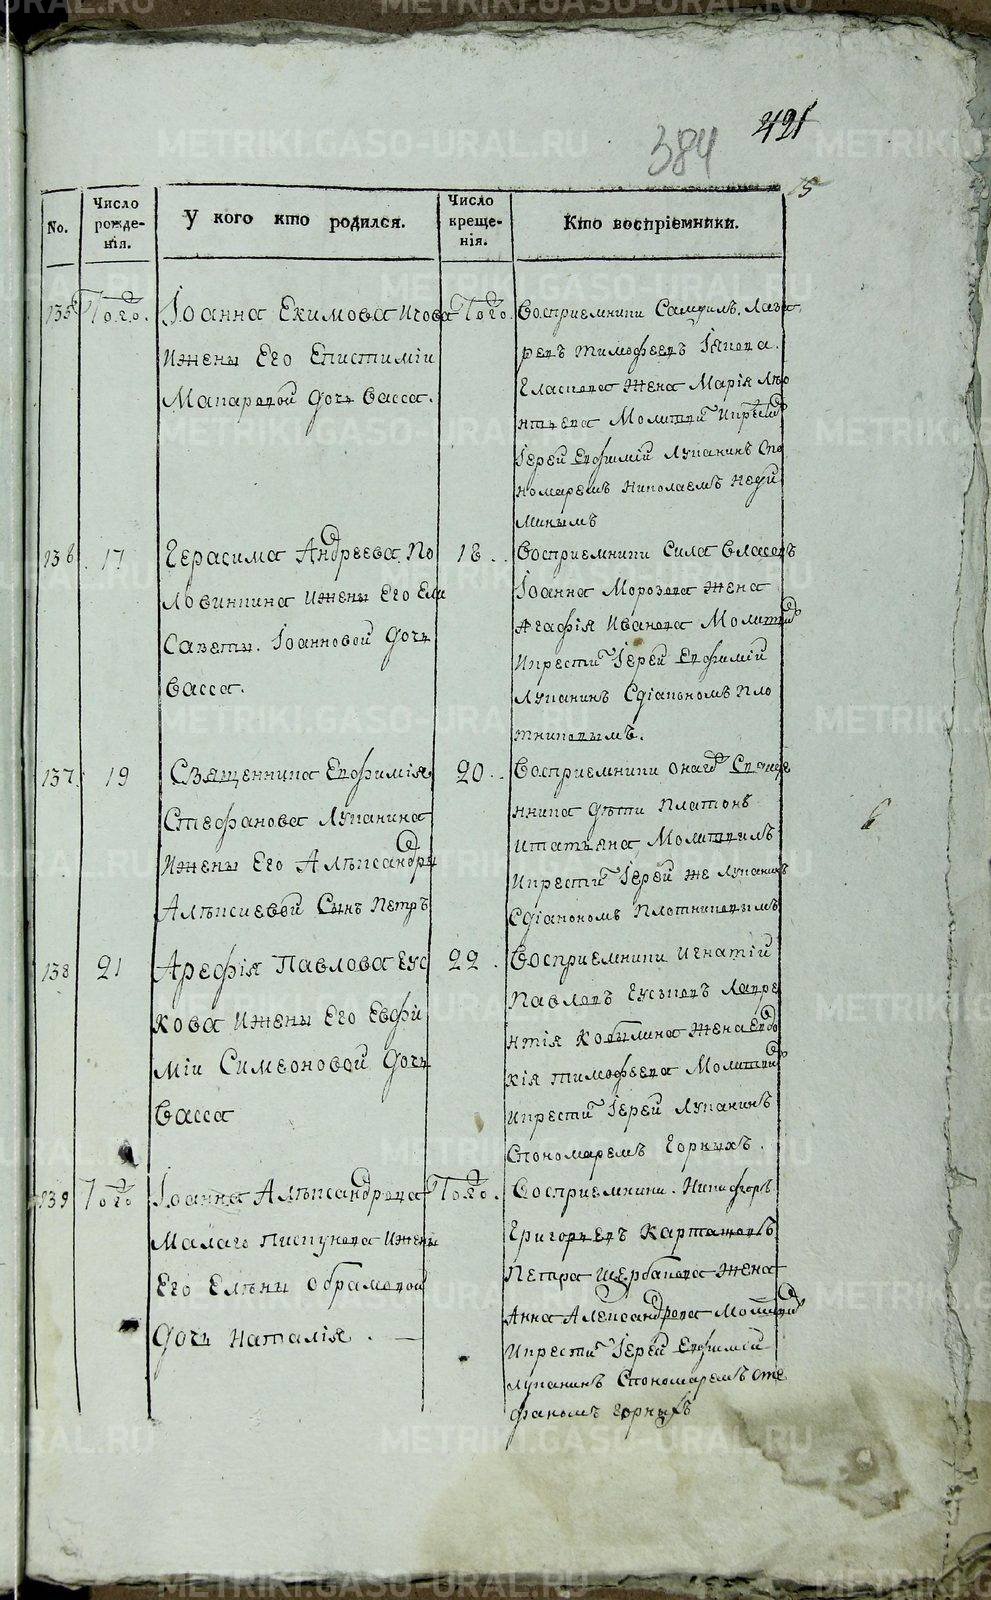 421
384
15
No.
Число рожде-нія.
У кого кто родился.
Число креще-нія.
Кто воспріемники.
135
Того.
Іоанна Екимова Ичова
Ижены Его Епистиміи
Макаровой дочь Васса.
Того.
Восприемники Самуилъ Лаза
ревъ Тимофеевъ
Власова жена Марія Лео
нтьева Молитвилъ Икрестилъ
Іерей Евфимій Луканинъ Спо
номаремъ Николаемъ
136
17
Герасима Андреева По
ловинкина Ижены Его Ели
Саветы. Іоанновой дочь
Васса.
18
Восприемники Сила Власовъ
Іоанна Морозова жена
Агафія Иванова Молитвилъ
Икрестилъ Іерей Евфимій
Луканинъ Сдіакономъ Пло
тниковымъ.
137
19
Священника Евфимія
Стефанова Луканина
Ижены Его Алѣксандры
Алѣксиевой Сынъ Петръ
20
Восприемники Онаго Свяще
нника дѣти Платонъ
Итатьяна Молитвилъ
Икрестилъ Іерей же Луканинъ
Сдіакономъ Плотниковымъ
6
138
21
Арефія Павлова Гус
кова Ижены Его Евфи
міи Симеоновой дочь
Васса
22
Восприемники Игнатій
Павловъ Гуськовъ Лавре
нтія Кобылина жена Евдо
кія Тимофеева Молитвилъ
Икрестилъ Іерей Луканинъ
Спономаремъ Горныхъ.
139
Того
Іоанна Алѣксандрова
Малаго Пискунова Ижены
Его Елѣны Абрамовой
дочь Наталія.
Того.
Восприемники. Никифоръ
Григорьевъ Карташовъ
Петра Щербакова жена
Анна Алѣксандрова Молитвилъ
Икрестилъ Іерей Евфимій
Луканинъ Спономаремъ Сте
фаномъ Горныхъ
METRIKI.GASO-URAL.RU